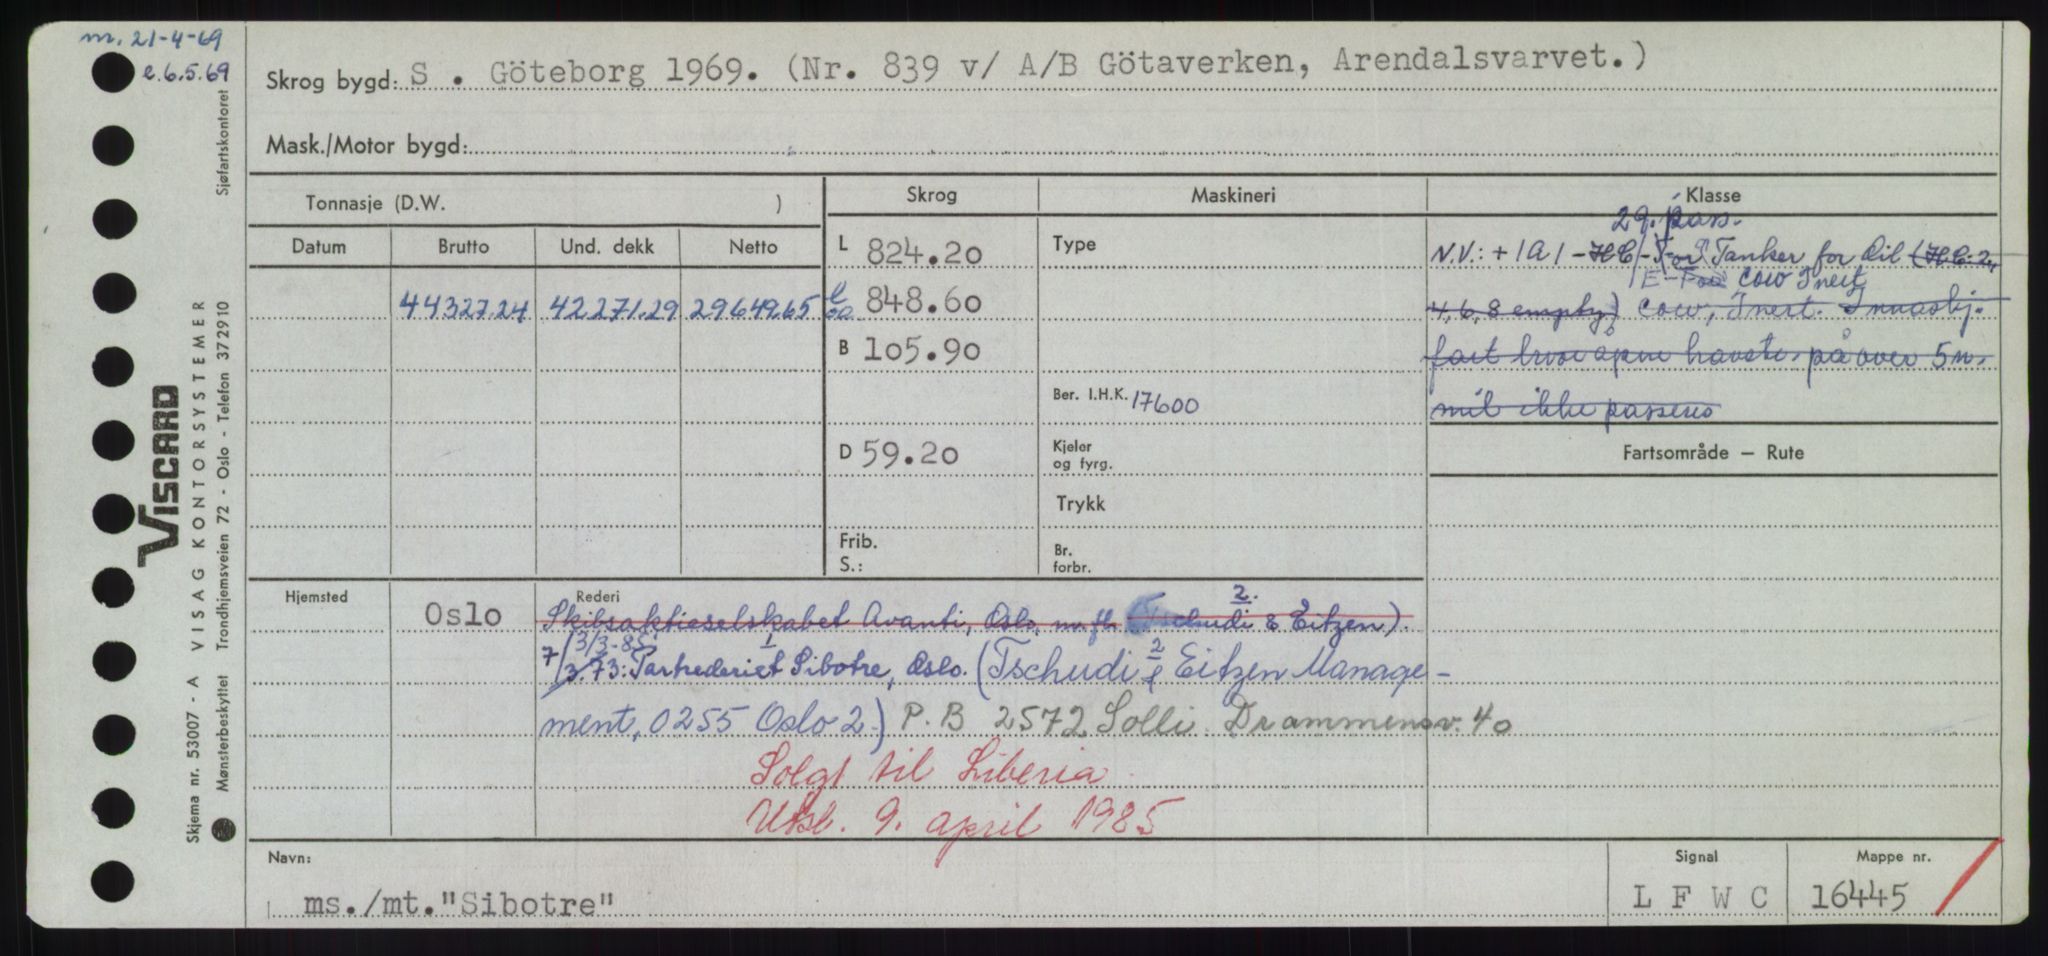 m. 21-4-69
e. 6.5.69
Skrog bygd: S . Göteborg 1969. (Nr. 839 v/ A/B Götaverken, Arendalsvarvet.)
Mask./Motor bygd:
Tonnasje (D.W. )
Skrog
Maskineri
Klasse
Datum
Brutto
Und. dekk
Netto
44327.24
42271.29
29649.65
L 824.20
l oa 848.60
B 105.90
D 59.20
Frib.
S.:
Type
Ber. I.H.K. 17600
Kjeler
og fyrg.
Trykk
Br.
forbr.
29. pass.
N.V.: + 1A1 - HC/ - "For" Tanker for Oil (H.C. 2,
E-Foa COW Inert
4, 6, 8 empty) COW, Inert.
på over 5 n.
mil ikke passeres
Fartsområde — Rute
Hjemsted
Oslo
Rederi
2.
Skibsaktieselskabet Avanti, Oslo, m.fl. (Tschudi & Eitzen).
13/3-85 1 2
7/3.73: Partrederiet Sibotre, Oslo. (Tschudi & Eitzen Manage-
ment, 0255 Oslo 2.) P.B 2572 Solli. Drammensv. 40
Solgt til Liberia
Utsl. 9. april 1985
Navn:
ms./mt."Sibotre"
Signal
L F W C
Mappe nr.
16445
Skjema nr. 53007 - A VISAG KONTORSYSTEMER
VISCARD
Mønsterbeskyttet Trondhjemsveien 72 - Oslo - Telefon 37 29 10 Sjøfartskontoret